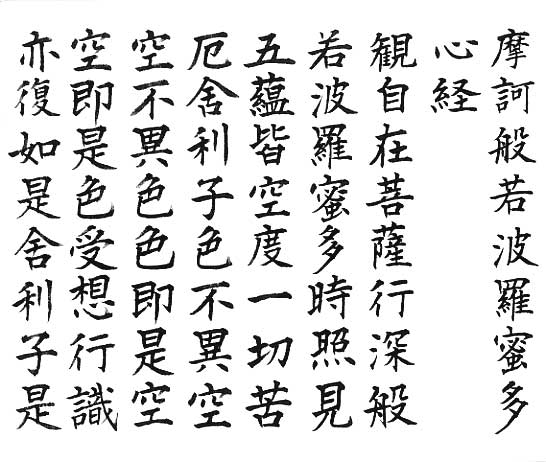 摩訶般若波羅蜜多
心経
観自在菩薩行深般
若波羅蜜多時照見
五蘊皆空度一切苦
厄舎利子色不異空
空不異色色即是空
空即是色受想行識
亦復如是舎利子是